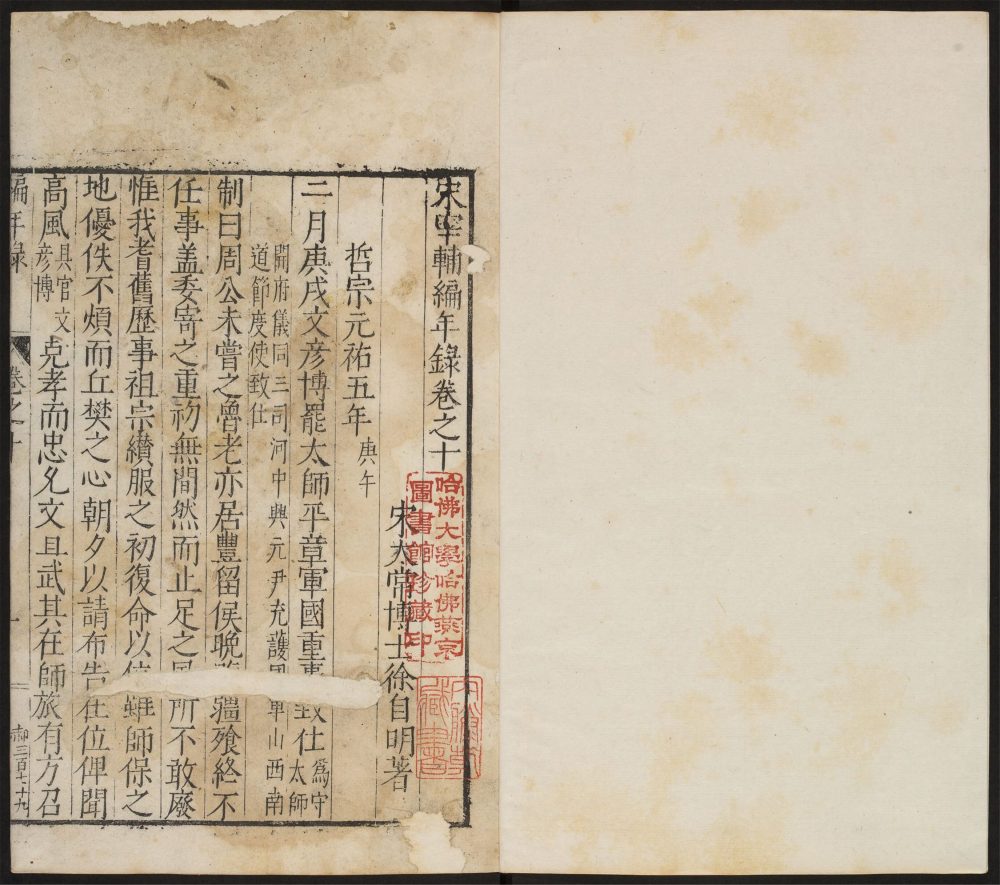 宋宰輔編年錄卷之十
宋太常博士徐自明著
哲宗元祐五年庚午
二月庚戌文彥博罷太師平章軍國重事致仕為守太師
開府儀同三司河中興元尹充護軍山西南
道節度使致仕
制曰周公未嘗之魯老亦居豐留侯晚疆飧終不
任事盖委寄之重初無間然而止足之風所不敢廢
惟我耆舊歷事祖宗纉服之初復命以位雖師保之
地優佚不煩而丘樊之心朝夕以請布告在位俾聞
高風具官文彥博克孝而忠允文且武其在師旅有方召
編年錄
卷之十
一
三百七十九
哈佛大學哈佛燕京
圖書館珍藏印
藏書